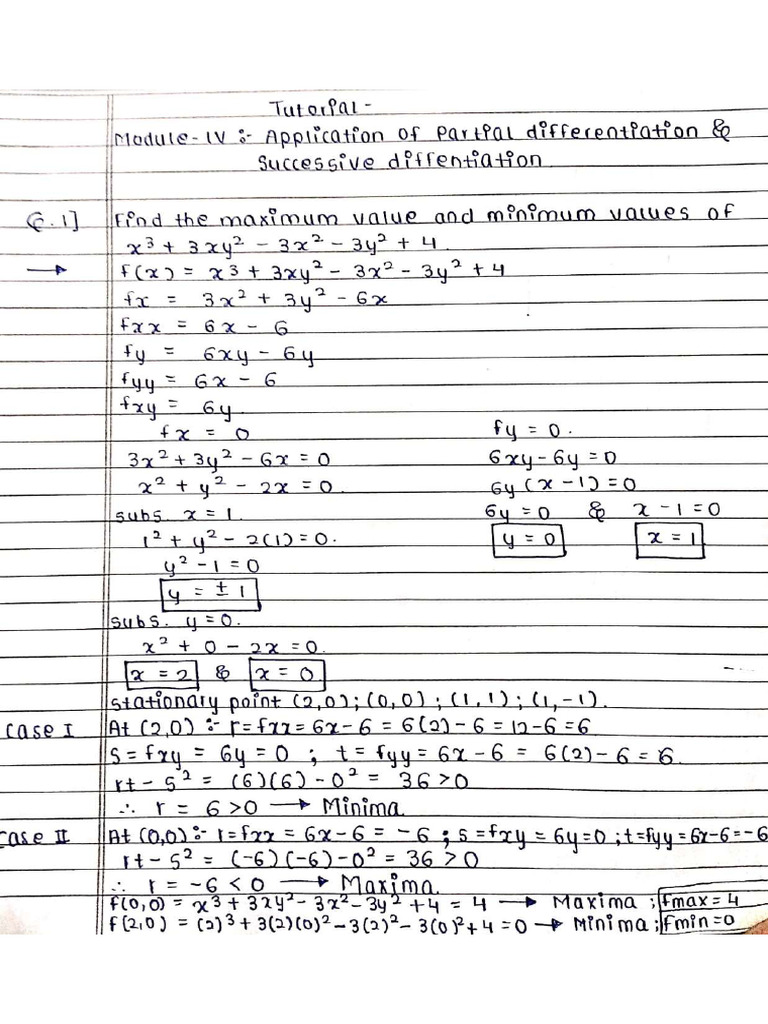 Tutorial -
Module - IV :- Application of Partial differentiation &
Successive diffentiation
Q.1] Find the maximum value and minimum values of
x³ + 3xy² - 3x² - 3y² + 4
→ f(x) = x³ + 3xy² - 3x² - 3y² + 4
fx = 3x² + 3y² - 6x
fxx = 6x - 6
fy = 6xy - 6y
fyy = 6x - 6
fxy = 6y
fx = 0 fy = 0.
3x² + 3y² - 6x = 0 6xy - 6y = 0
x² + y² - 2x = 0. 6y (x - 1) = 0
subs. x = 1. 6y = 0 & x - 1 = 0
1² + y² - 2(1) = 0. y = 0 x = 1
y² - 1 = 0
y = ± 1
subs. y = 0.
x² + 0 - 2x = 0.
x = 2 & x = 0
stationary point (2,0) ; (0,0) ; (1,1) ; (1,-1).
case I At (2,0) :- r = fxx = 6x - 6 = 6(2) - 6 = 12 - 6 = 6
S = fxy = 6y = 0 ; t = fyy = 6x - 6 = 6(2) - 6 = 6.
rt - s² = (6)(6) - 0² = 36 > 0
∴ r = 6 > 0 → Minima
case II At (0,0) :- r = fxx = 6x - 6 = -6 ; s = fxy = 6y = 0 ; t = fyy = 6x - 6 = -6
rt - s² = (-6)(-6) - 0² = 36 > 0
∴ r = -6 < 0 → Maxima
f(0,0) = x³ + 3xy² - 3x² - 3y² + 4 = 4 → Maxima ; fmax = 4
f(2,0) = (2)³ + 3(2)(0)² - 3(2)² - 3(0)² + 4 = 0 → Minima ; fmin = 0